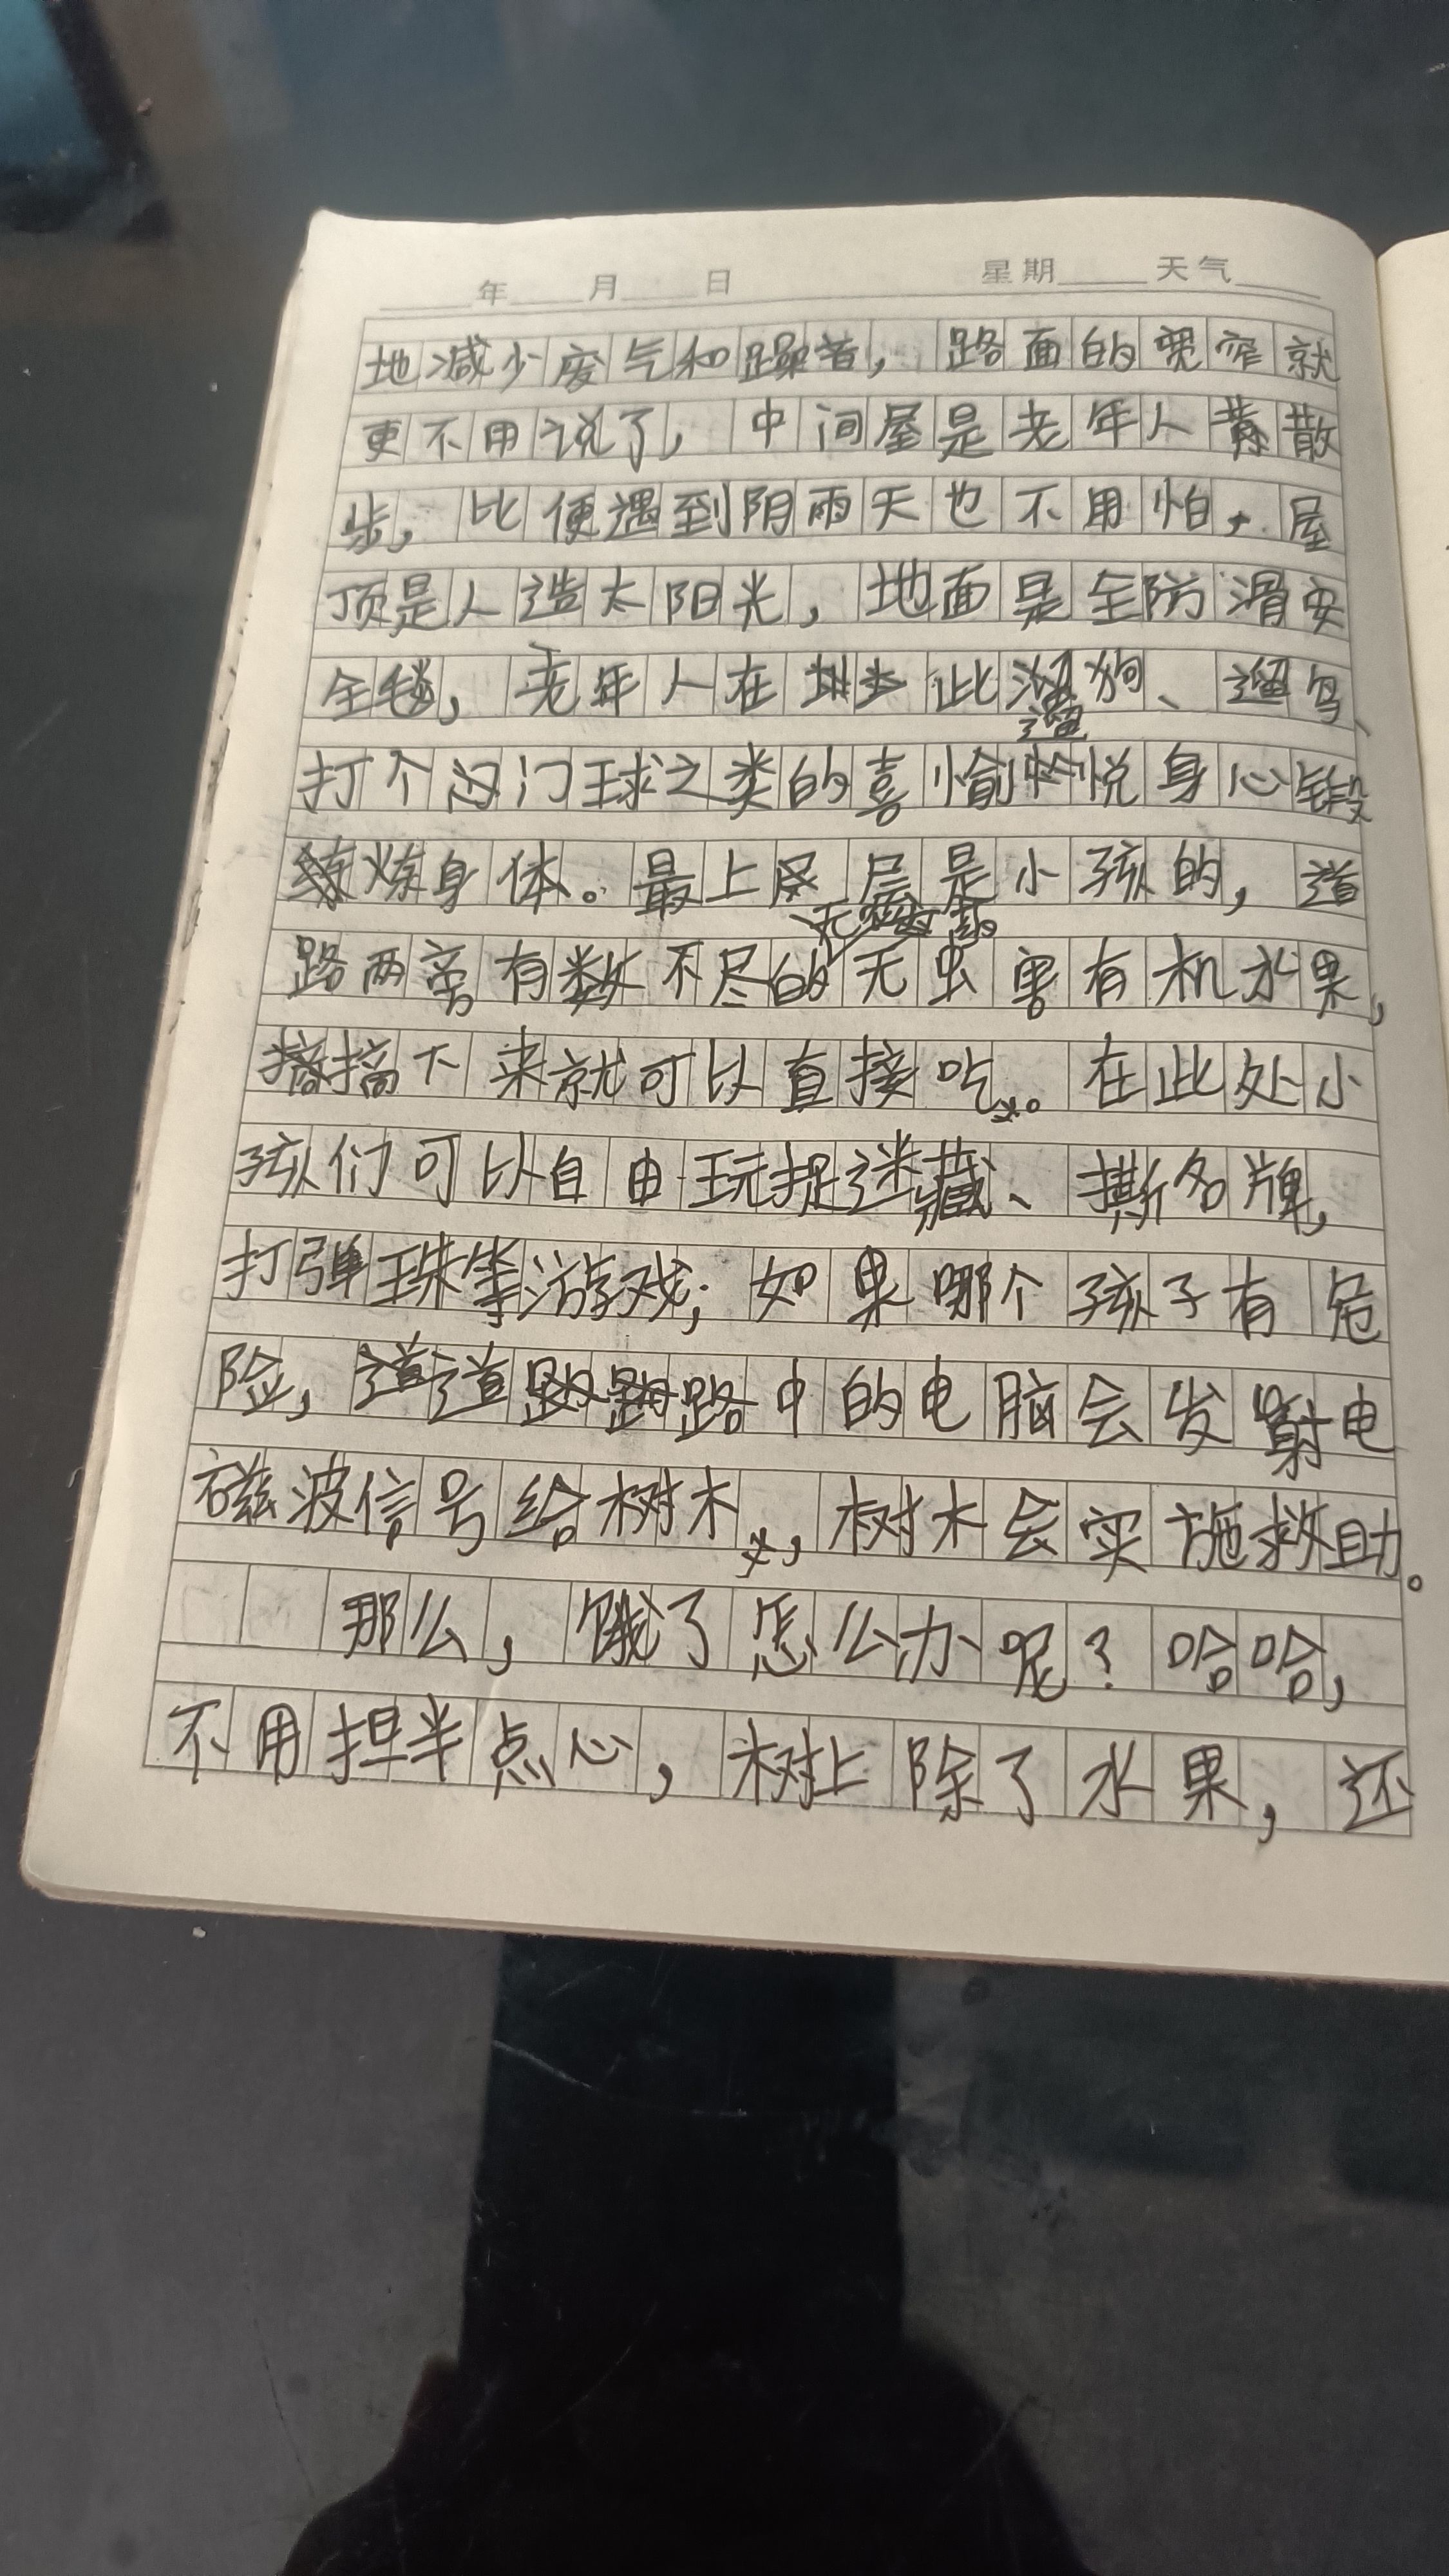 年 月 日 星期 天气
地减少废气和躁音，路面的宽窄就
更不用说了，中间屋是老年人散
步，比便遇到阴雨天也不用怕，屋
顶是人造太阳光，地面是全防滑安
全毯，老年人在此遛狗、遛鸟、
打个门球之类的喜愉悦身心锻
炼身体。最上层是小孩的，道
路两旁有数不尽的无虫害有机水果，
摘下来就可以直接吃。在此处小
孩们可以自由玩捉迷藏、撕名牌，
打弹珠等游戏；如果哪个孩子有危
险，道路中的电脑会发射电
磁波信号给树木，树木会实施救助。
那么，饿了怎么办呢？哈哈，
不用担半点心，树上除了水果，还